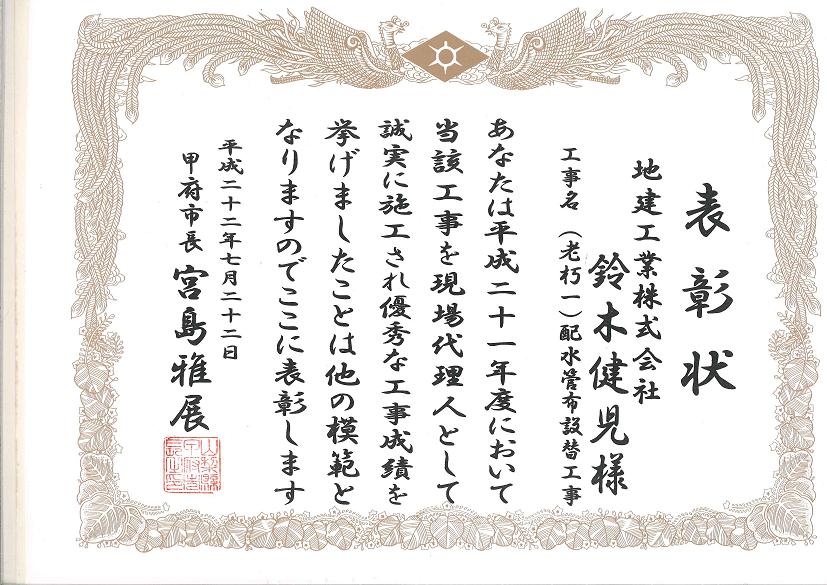 表彰状
地建工業株式会社
鈴木健児様
工事名（老朽一）配水管布設替工事
あなたは平成二十一年度において
当該工事を現場代理人として
誠実に施工され優秀な工事成績を
挙げましたことは他の模範と
なりますのでここに表彰します
平成二十二年七月二十二日
甲府市長 宮島雅展